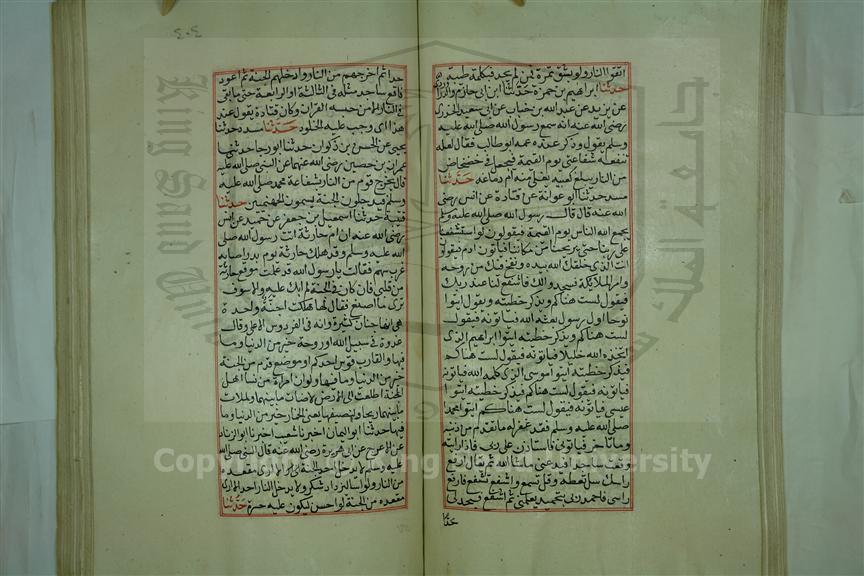 اتقوا النار ولو بشق تمرة فمن لم يجد فبكلمة طيبة
حدثنا ابراهيم بن حمزة حدثنا ابن ابي حازم والدراوردي
عن يزيد عن عبد الله بن خباب عن ابي سعيد الخدري
رضي الله عنه انه سمع رسول الله صلى الله عليه
وسلم يقول وذكر عنده عمه ابو طالب فقال لعله
تنفعه شفاعتي يوم القيمة فيجعل في ضحضاح
من النار يبلغ كعبيه يغلي منه ام دماغه حدثنا
مسدد حدثنا ابو عوانة عن قتادة عن انس رضي
الله عنه قال قال رسول الله صلى الله عليه وسلم
يجمع الله الناس يوم القيمة فيقولون لو استشفعنا
على ربنا حتى يريحنا من مكاننا فياتون ادم فيقولون
انت الذي خلقك الله بيده ونفخ فيك من روحه
وامر الملائكة فسجدوا لك فاشفع لنا عند ربك
فيقول لست هناكم ويذكر خطيئته ويقول ايتوا
نوحا اول رسول بعثه الله فياتونه فيقول
لست هناكم ويذكر خطيئته ايتوا ابراهيم الذي
اتخذه الله خليلا فياتونه فيقول لست هناكم
فيذكر خطيئته ايتوا موسى الذي كلمه الله فياتونه
فيقول لست هناكم فيذكر خطيئته ايتوا
عيسى فياتونه فيقول لست هناكم ايتوا محمدا
صلى الله عليه وسلم فقد غفر له ما تقدم من ذنبه
وما تاخر فياتوني فاستاذن على ربي فاذا رايته
وقعت ساجدا فيدعني ما شاء الله ثم يقال ارفع
راسك سل تعطه وقل تسمع واشفع تشفع فارفع
راسي فاحمد ربي بتحميد يعلمني ثم اشفع فيحد لي
حدا
٤٠٤
حدا ثم اخرجهم من النار وادخلهم الجنة ثم اعود
فاقع ساجدا مثله في الثالثة او الرابعة حتى ما بقي
في النار الا من حبسه القران وكان قتادة يقول عند
هذا اي وجب عليه الخلود حدثنا مسدد حدثنا
يحيى عن الحسن بن ذكوان حدثنا ابو رجا حدثني
عمران بن حصين رضي الله عنهما عن النبي صلى الله عليه
قال يخرج قوم من النار بشفاعة محمد صلى الله عليه
وسلم فيدخلون الجنة يسمون الجهنميين حدثنا
قتيبة حدثنا اسمعيل بن جعفر عن حميد عن انس
رضي الله عنه ان ام حارثة اتت رسول الله صلى
الله عليه وسلم وقد هلك حارثة يوم بدر اصابه
غرب سهم فقالت يا رسول الله قد علمت موقع حارثة
من قلبي فان كان في الجنة لم ابك عليه والا سوف
ترى ما اصنع فقال لها هبلت اجنة واحدة
هي انها جنان كثيرة وانه في الفردوس الاعلى وقال
غدوة في سبيل الله او روحة خير من الدنيا وما
فيها ولقاب قوس احدكم او موضع قدم من الجنة
خير من الدنيا وما فيها ولو ان امراة من نسا اهل
الجنة اطلعت الى الارض لاضات ما بينهما ولملات
ما بينهما ريحا ولنصيفها يعني الخمار خير من الدنيا وما
فيها حدثنا ابو اليمان اخبرنا شعيب اخبرنا ابو الزناد
عن الاعرج عن ابي هريرة رضي الله عنه قال النبي صلى الله
عليه وسلم لا يدخل احد الجنة الا اري مقعده
من النار لو اسا ليزداد شكرا ولا يدخل النار احد الا اري
مقعده من الجنة لو احسن ليكون عليه حسرة حدثنا
Copyright © King Saud University
King Saud University
جامعة الملك سعود